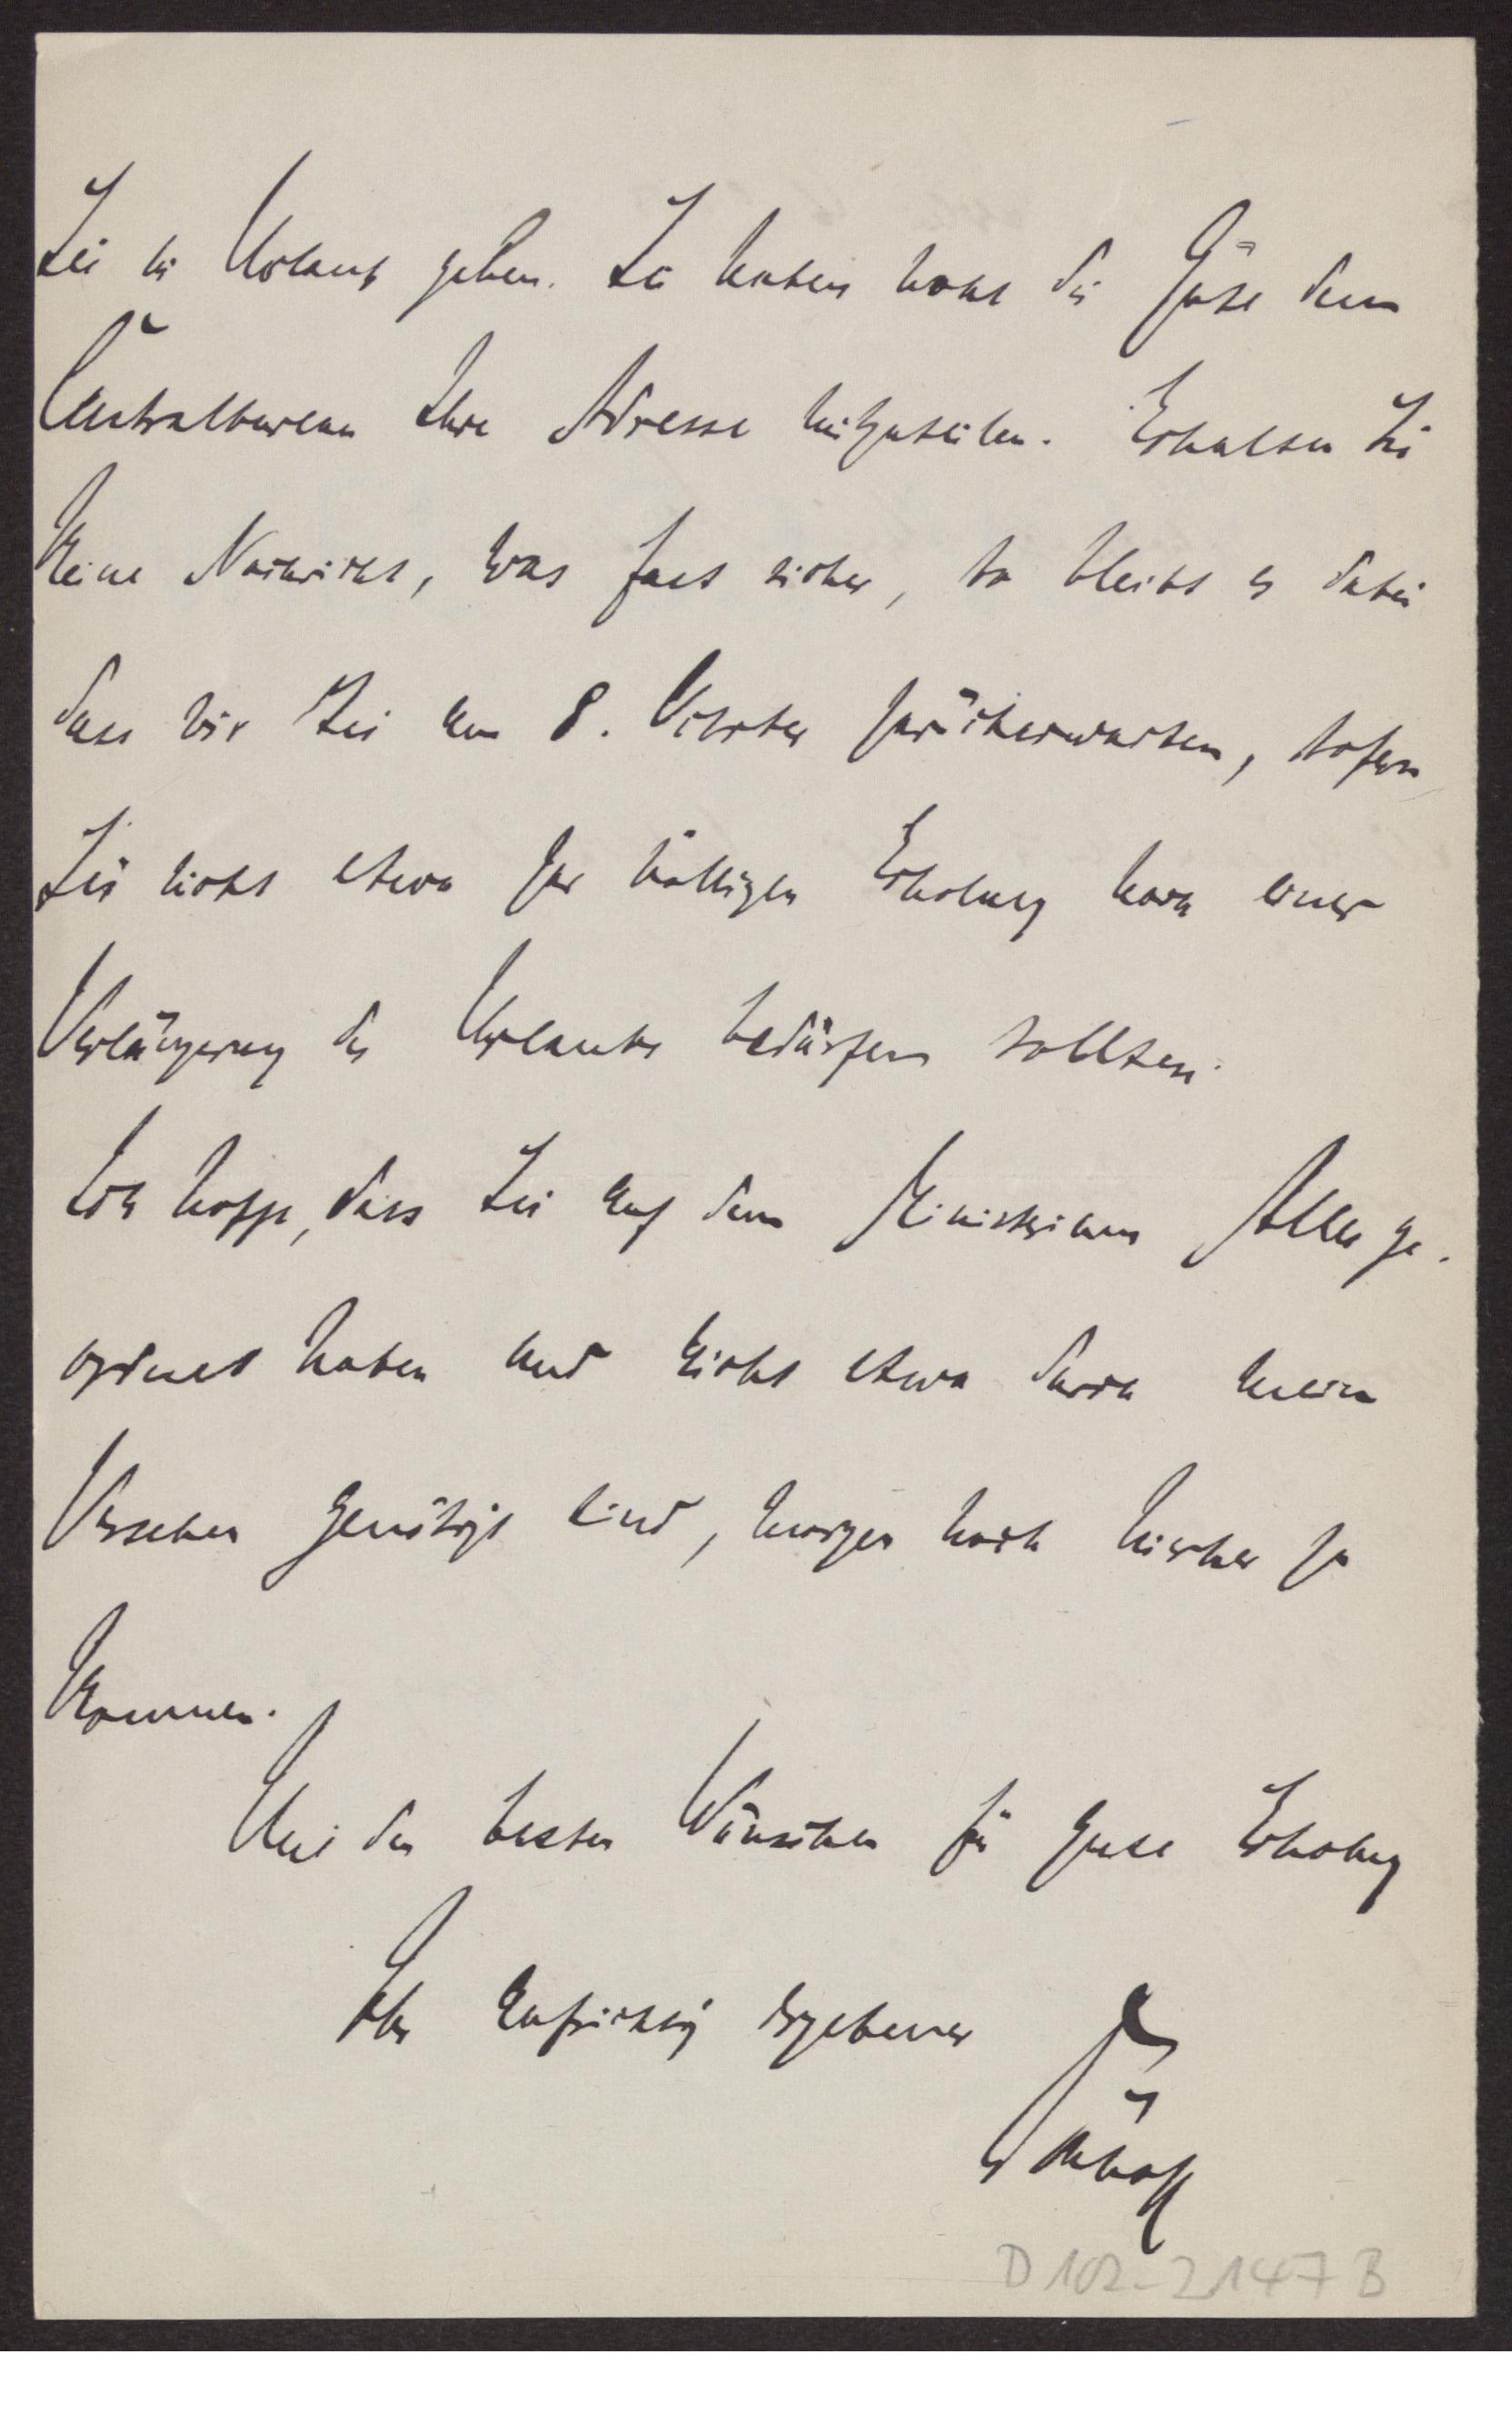 Sie in Urlaub gehen. Sie haben wohl die Güte dem
Centralbureau Ihre Adresse mitzuteilen. Erhalten Sie
keine Nachricht, was fast sicher, so bleibt es dabei
dass wir Sie am 8. Oktober zurückerwarten, sofern
Sie nicht etwa zur völligen Erholung noch einer
Verlängerung des Urlaubs bedürfen sollten.
Ich hoffe, dass Sie auf dem Ministerium Alles ge-
ordnet haben und nicht etwa durch mein
Versehen genötigt sind, morgen noch hierher zu
kommen.
Mit den besten Wünschen für gute Erholung
Ihr aufrichtig ergebener
D 102-2147 B